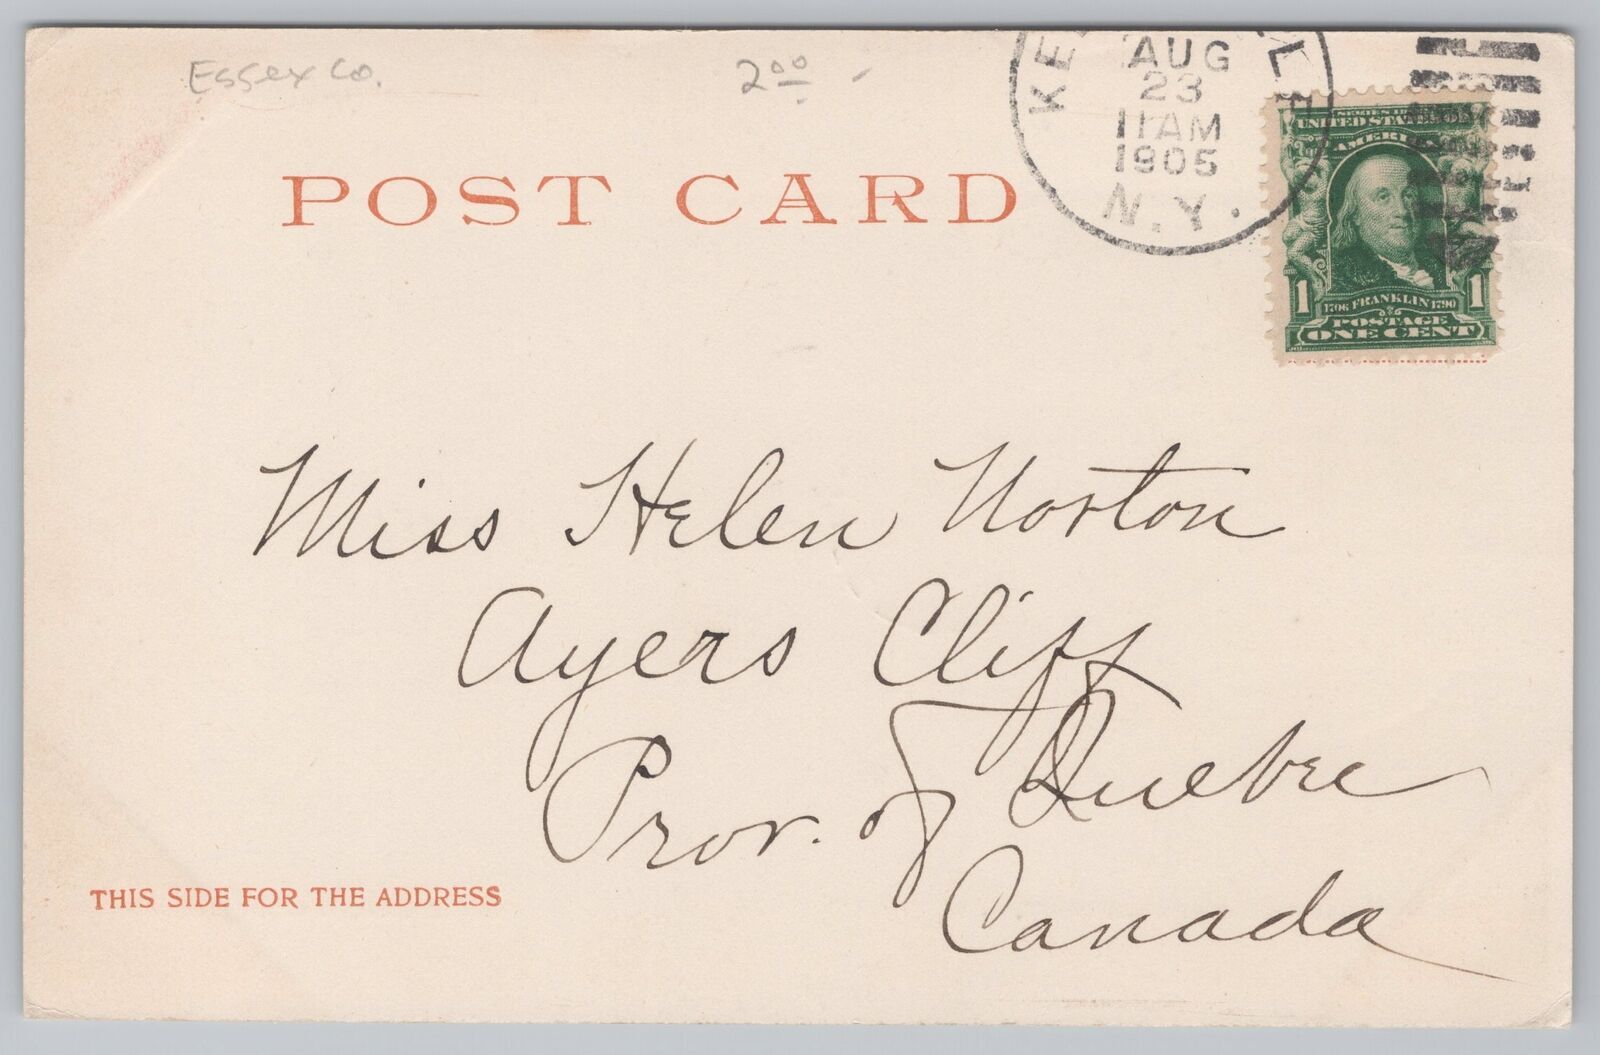 Essex Co.
2.00
AUG
23
11 AM
1905
N.Y.
POST CARD
UNITED STATES OF
AMERICA
1 1706 FRANKLIN 1790 1
POSTAGE
ONE CENT
Miss Helen Norton
Ayers Cliff
Prov. of Quebec
Canada
THIS SIDE FOR THE ADDRESS